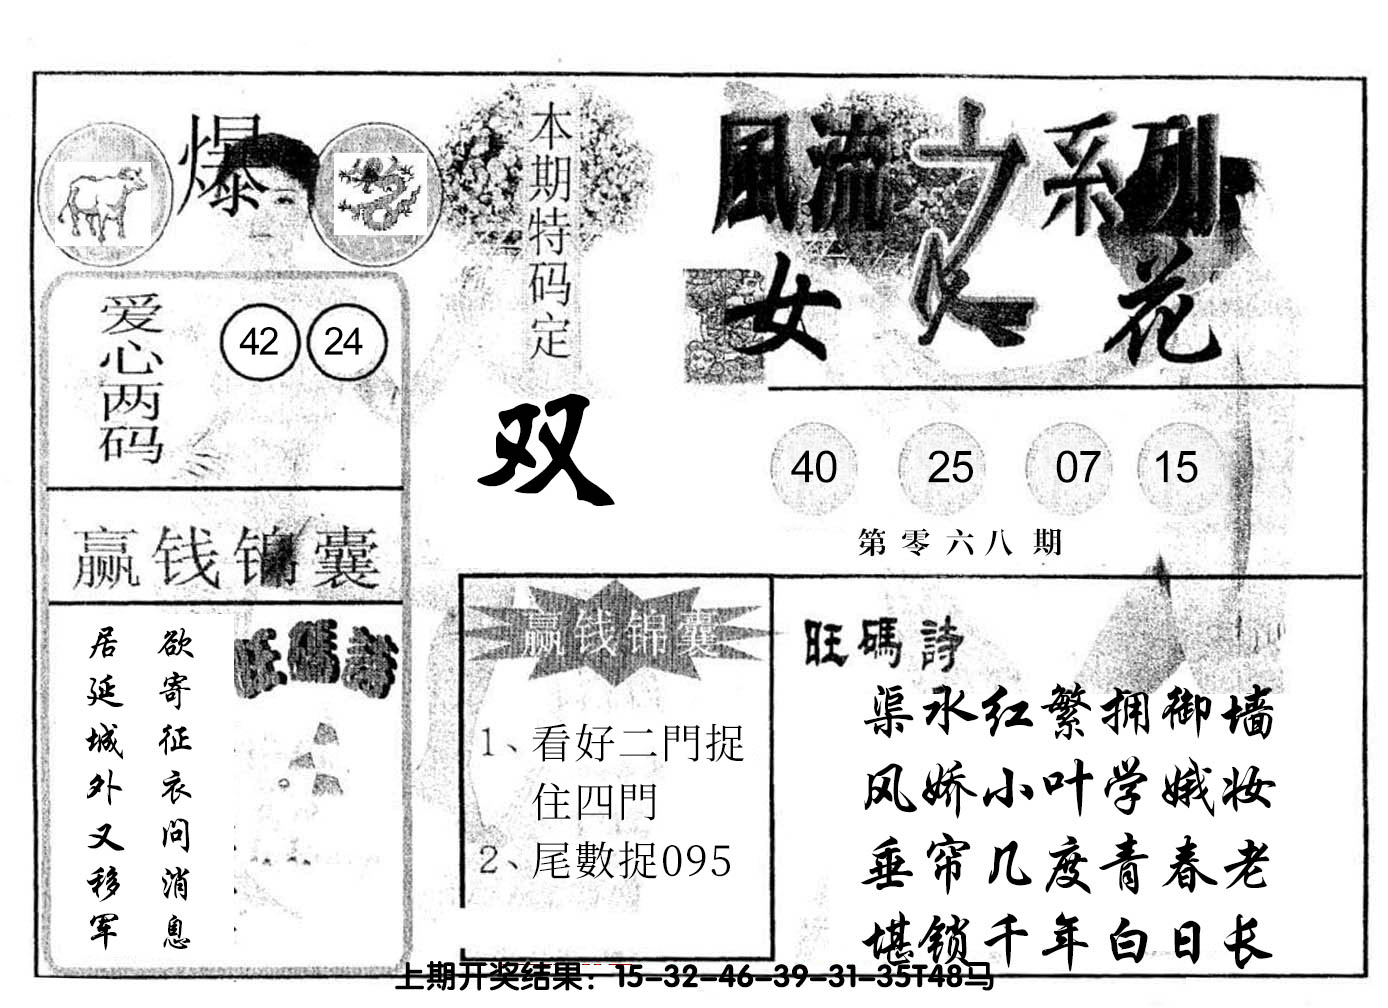 爆
爱心两码
42 24
赢钱锦囊
欲寄征衣问消息
居延城外又移军
旺碼詩
本期特码定
双
風流之系列
女人花
40 25 07 15
第零六八期
赢钱锦囊
1、看好二門捉
住四門
2、尾數捉095
旺碼詩
渠水红繁拥御墙
风娇小叶学娥妆
垂帘几度青春老
堪锁千年白日长
上期开奖结果：15-32-46-39-31-35T48马